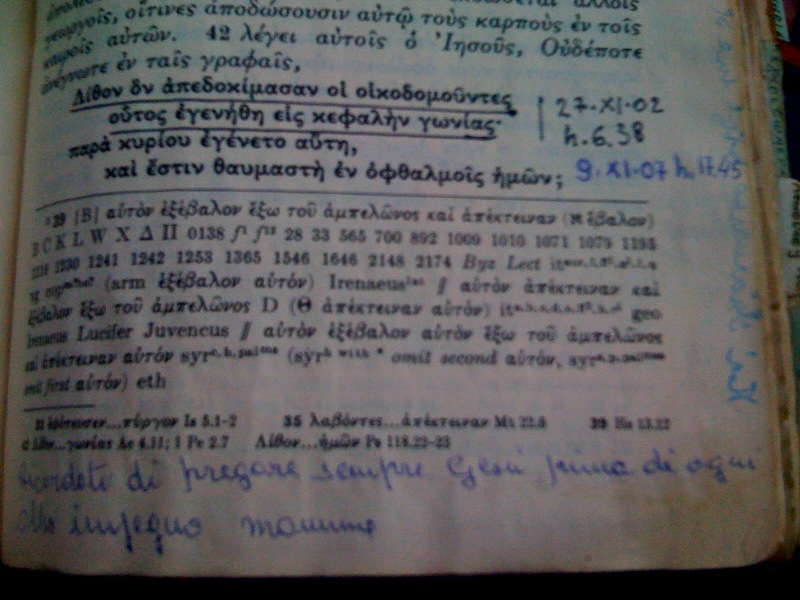 γεωργοῖς, οἵτινες ἀποδώσουσιν αὐτῷ τοὺς καρποὺς ἐν τοῖς
καιροῖς αὐτῶν. 42 λέγει αὐτοῖς ὁ Ἰησοῦς, Οὐδέποτε
ἀνέγνωτε ἐν ταῖς γραφαῖς,
Λίθον ὃν ἀπεδοκίμασαν οἱ οἰκοδομοῦντες
27-XI-02
οὗτος ἐγενήθη εἰς κεφαλὴν γωνίας·
h.6.38
παρὰ κυρίου ἐγένετο αὕτη,
καὶ ἔστιν θαυμαστὴ ἐν ὀφθαλμοῖς ἡμῶν;
9-XI-07 h.17.45
39 {B} αὐτὸν ἐξέβαλον ἔξω τοῦ ἀμπελῶνος καὶ ἀπέκτειναν (א ἔβαλον)
B C K L W X Δ Π 0138 f¹ f¹³ 28 33 565 700 892 1009 1010 1071 1079 1195
1216 1230 1241 1242 1253 1365 1546 1646 2148 2174 Byz Lect
(arm ἐξέβαλον αὐτόν) Irenaeus // αὐτὸν ἀπέκτειναν καὶ
ἐξέβαλον ἔξω τοῦ ἀμπελῶνος D (Θ ἀπέκτειναν αὐτόν) geo
Irenaeus Lucifer Juvencus // αὐτὸν ἐξέβαλον αὐτὸν ἔξω τοῦ ἀμπελῶνος
καὶ ἀπέκτειναν αὐτόν (syrʰ with * omit second αὐτόν,
omit first αὐτόν) eth
33 ἐφύτευσεν...πύργον Is 5.1-2 35 λαβόντες...ἀπέκτειναν Mt 22.6 39 He 13.12
42 Λίθον...γωνίας Ac 4.11; 1 Pe 2.7 Λίθον...ἡμῶν Ps 118.22-23
Ricordati di pregare sempre Gesù prima di ogni
impegno